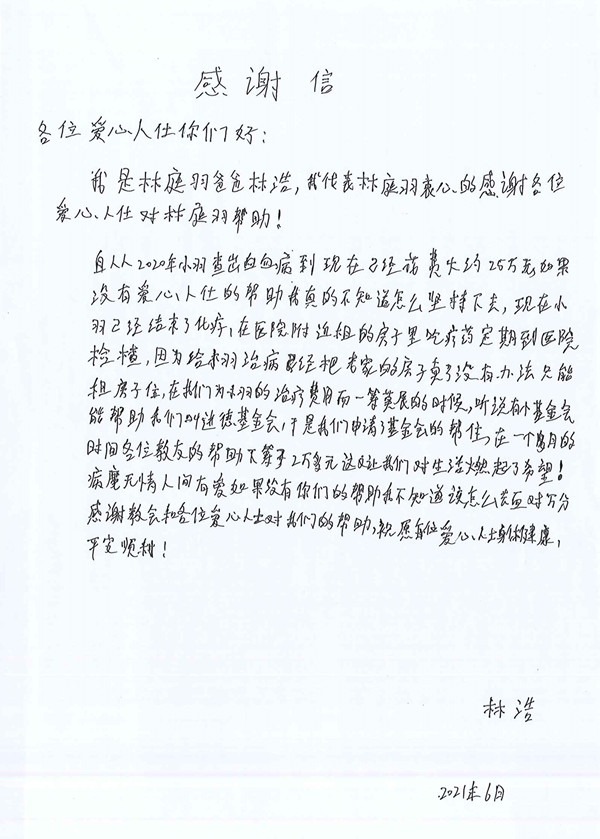 感谢信
各位爱心人仕你们好：
我是林庭羽爸爸林浩，我代表林庭羽衷心的感谢各位
爱心人仕对林庭羽帮助！
自从2020年小羽查出白血病到现在已经花费大约25万元如果
没有爱心人仕的帮助我真的不知道怎么坚持下去，现在小
羽已经结束了化疗，在医院附近租的房子里吃疗药定期到医院
检查，因为给小羽治病已经把老家的房子卖了没有办法只能
租房子住，在我们为小羽的治疗费用而一筹莫展的时候，听说有个基金会
能帮助我们叫进德基金会，于是我们申请了基金会的帮住，在一个月的
时间各位教友的帮助下筹了2万多元这让我们对生活燃起了希望！
病魔无情人间有爱如果没有你们的帮助我不知道该怎么去面对万分
感谢教会和各位爱心人士对我们的帮助，祝愿各位爱心人士身体健康，
平安顺利！
林浩
2021年6月